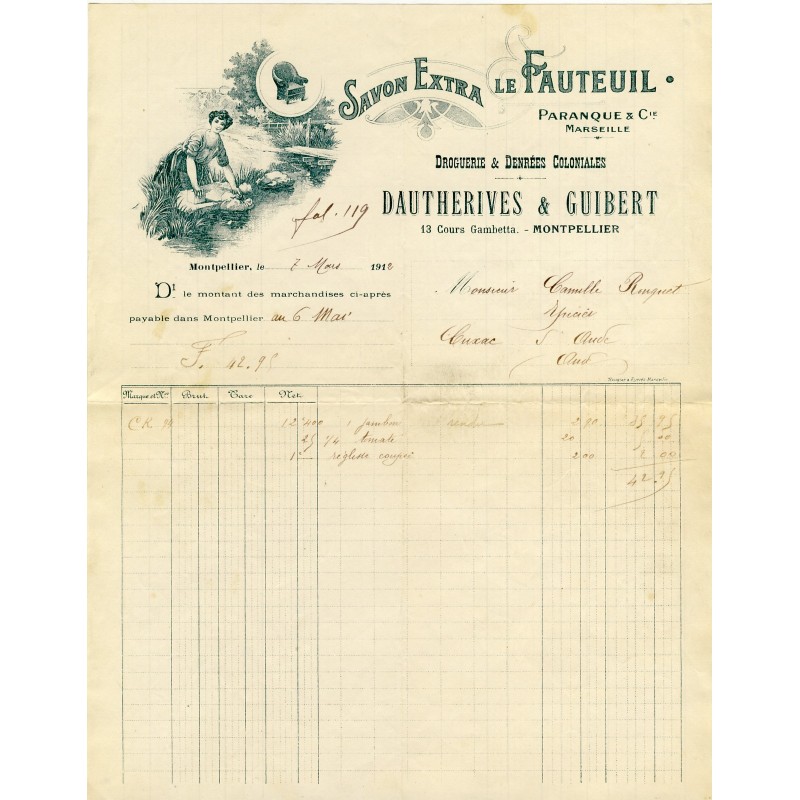 SAVON EXTRA LE FAUTEUIL
PARANQUE & CIE
MARSEILLE
DROGUERIE & DENRÉES COLONIALES
DAUTHERIVES & GUIBERT
13 Cours Gambetta. - MONTPELLIER
fol. 119
Montpellier, le 7 Mars 1912
Dt le montant des marchandises ci-après
payable dans Montpellier au 6 Mai
F. 42.95
Monsieur Camille Ringuet
Epicier
Cuxac d'Aude
Aude
Marque et Nos Brut. Tare Net.
CR 12 k 400 1 jambon 2.90 35 95
25 1/4 tomate 20 5 00
1 k réglisse coupée 2 00 2 00
42 95